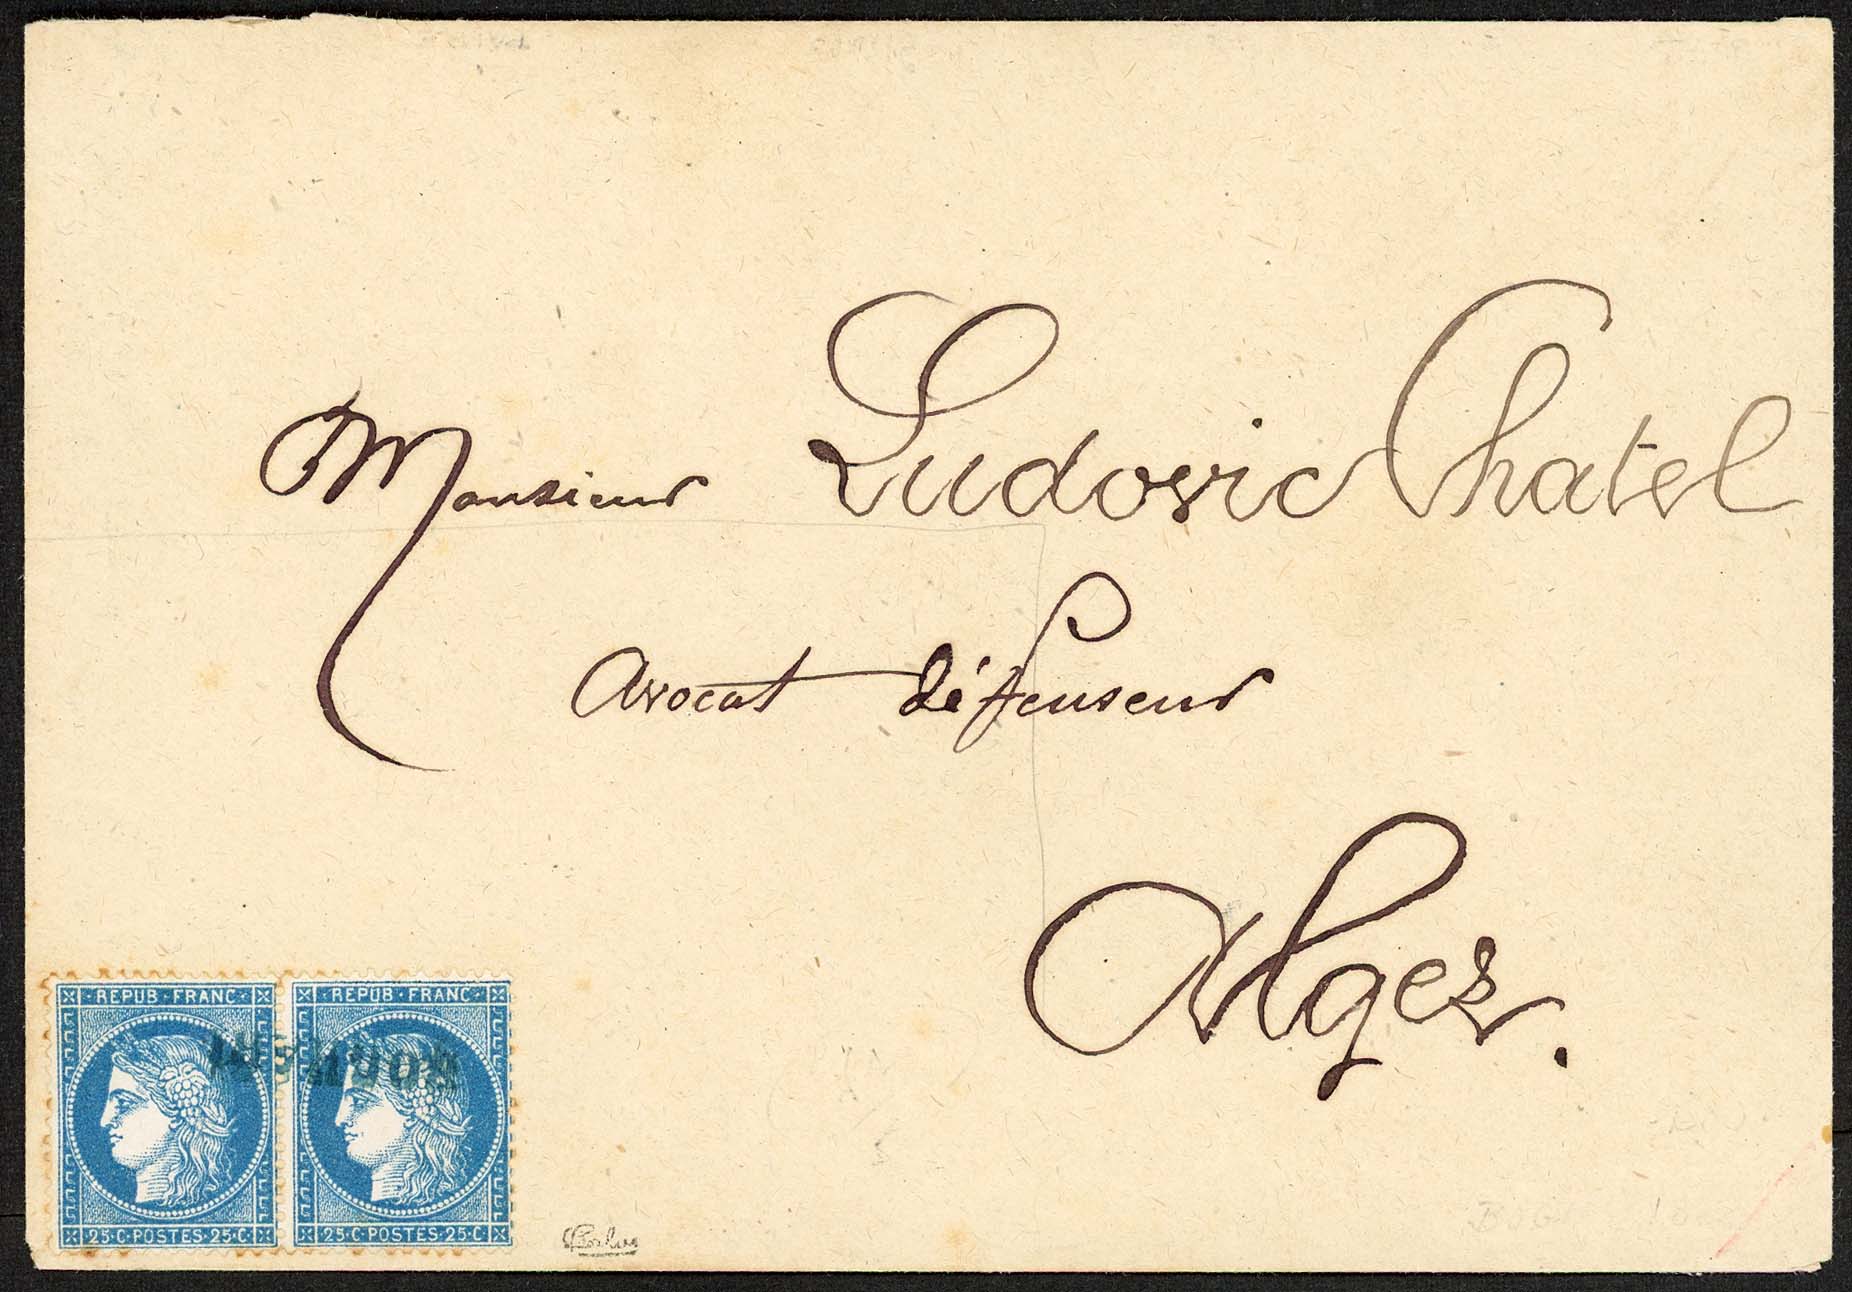 Monsieur Ludovic Chatel
Avocat défenseur
Alger.
REPUB · FRANC
25 · C · POSTES · 25 · C
REPUB · FRANC
25 · C · POSTES · 25 · C